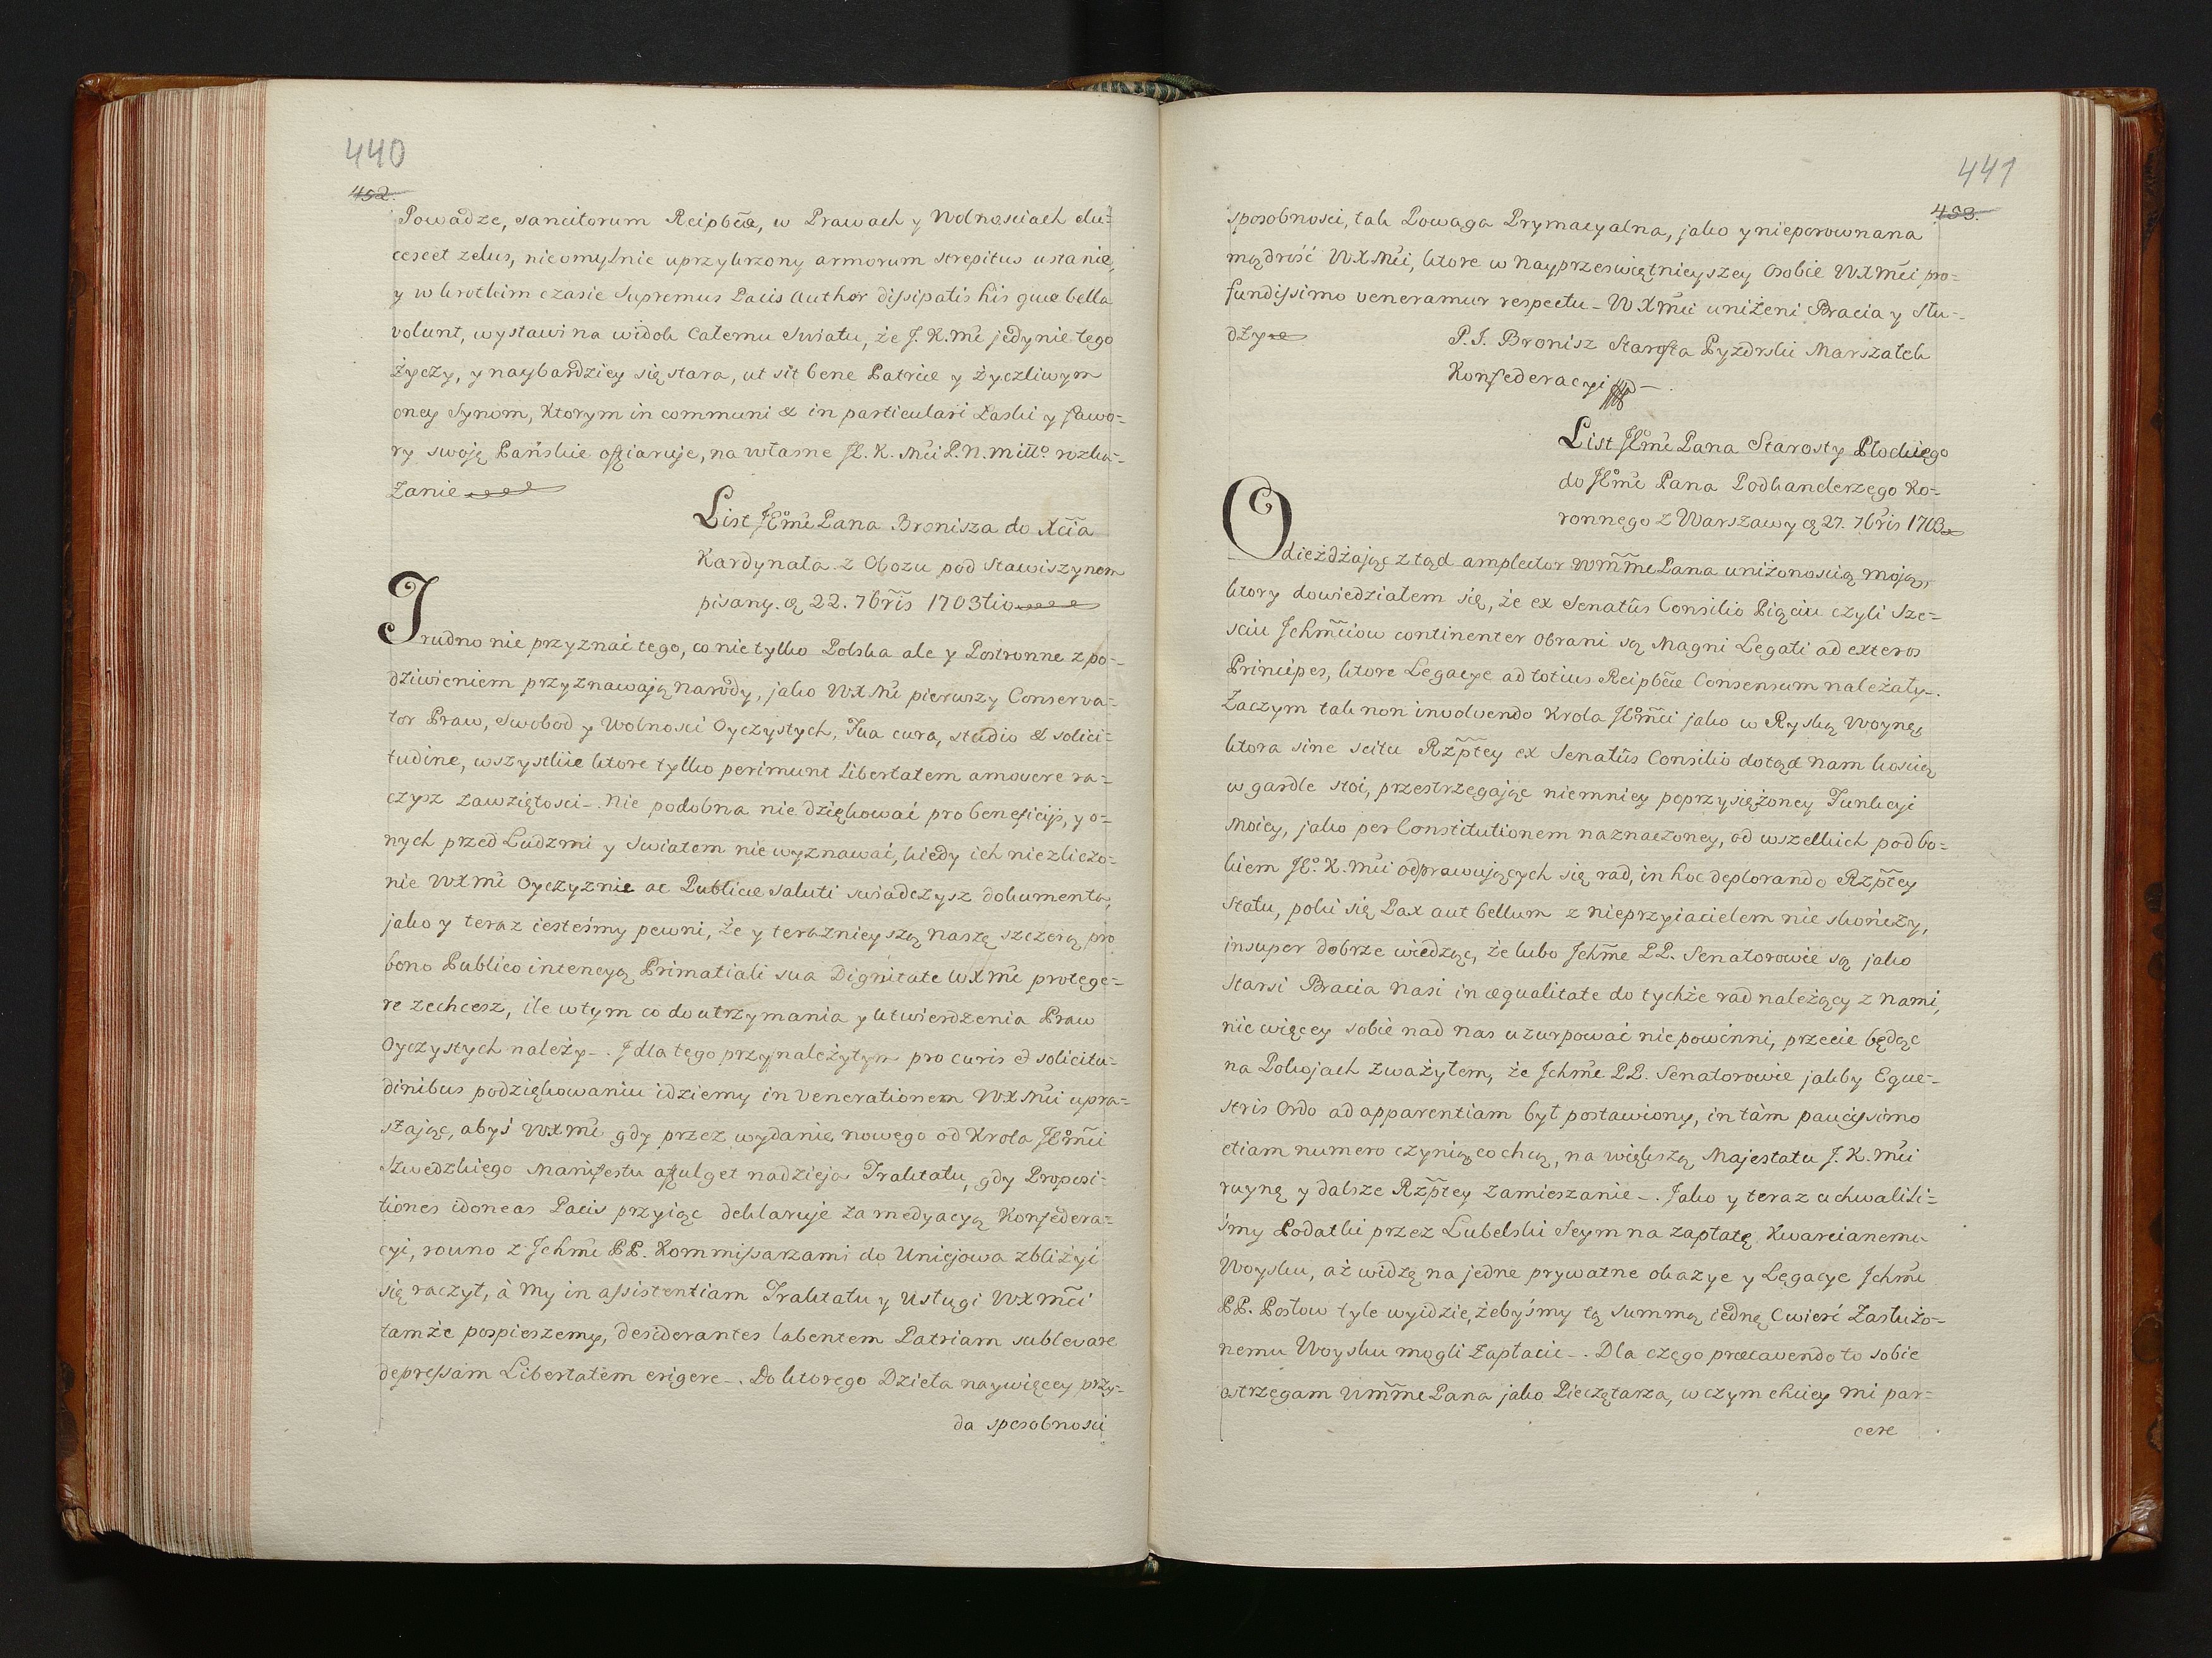 440
452.
Powadze, sancitorum Reipbcæ, w Prawach y Wolnosciach elu=
cescet zelus, nieomylnie uprzykrzony armorum strepitus ustanie,
y w krotkim czasie Supremus Pacis Author dissipatis his quæ bella
volunt, wystawi na widok Całemu Swiatu, że J. K. Mć jedynie tego
życzy, y naybardziey się stara, ut sit bene Patriæ y życzliwym
oney Synom, Ktorym in communi & in particulari Łaski y fawo=
ry swoję Pańskie offiaruje, na własne JK. Mći P. N. Miłło. rozka=
zanie
List JEmć Pana Bronisza do Xcia
Kardynała z Obozu pod Stawiszynem
pisany. ą 22. 7bris 1703tio
Trudno nie przyznać tego, co nie tylko Polska ale y Postronne z po=
dziwieniem przyznawają narody, jako WXMć pierwszy Conserva=
tor Praw, Swobod y Wolnosci Oyczystych, Tua cura, studio & solici=
tudine, wszystkie ktore tylko perimunt Libertatem amovere ra=
czysz zawziętosci_. Nie podobna nie dziękować pro beneficijs, y o=
nych przed Ludzmi y Swiatem nie wyznawać, kiedy ich niezliczo=
nie WXMć Oyczyznie ac Publicæ saluti swiadczysz dokumenta,
jako y teraz iesteśmy pewni, że y terazniey szą naszę szczerą pro
bono Publico intencyą Primatiali sua Dignitate WXMć protege=
re zechcesz, ile w tym co do utrzymania y utwierdzenia Praw
Oyczystych należy_. J dla tego przynależytym pro curis & solicitu=
dinibus podziękowaniu idziemy in venerationem WXMći upra=
szając, abyś WXMć gdy przez wydanie nowego od Krola JEmći
Szwedzkiego Manifestu affulget nadzieja Traktatu, gdy Proposi=
tiones idoneas Pacis przyiąc deklaruje za medyacyą Konfedera=
cyi, rowno z Jchmć PP. Kommissarzami do Uniejowa zbliżyi
się raczył, à My in assistentiam Traktatu y Usługi WXMći
tamże pospieszemy, desiderantes labentem Patriam sublevare
depressam Libertatem erigere_. Do ktorego Dzieła naywięcey przy=
da sposobnosci
441
453.
sposobnosci, tak Powaga Prymacyalna, jako y nieporownana
mądrość WXMći, ktore w Nayprzeswiętnieyszey Osobie WXMći pro=
fundissimo veneramur respectu_ WXMći uniżeni Bracia y Słu=
dzy
P. J. Bronisz Starosta Pyzdrski Marszałek
Konfederacyi
List JEmć Pana Starosty Płockiego
do JEmć Pana Podkanclerzego Ko=
ronnego z Warszawy ą 27. 7bris 1703
Odieżdżając ztąd amplector WmMć Pana uniżonoscią moją,
ktory dowiedziałem się, że ex Senatûs Consilio Pięciu czyli Sze=
sciu Jchmćiow continenter Obrani są Magni Legati ad exteros
Principes, ktore Legacye ad totius Reipbcæ Consensum należały_.
Zaczym tak non involvendo Krola JEmći jako w Ryską Woynę,
ktora sine scitu Rzptey ex Senatûs Consilio dotąd nam koscią
w gardle stoi, przestrzegając niemniey poprzysiężoney Funkcyi
Moiey, jako per Constitutionem naznaczoney, od wszelkich pod bo=
kiem JE. K. Mći odprawujących się rad, in hoc deplorando Rzptey
Statu, poki się Pax aut bellum z nieprzyiacielem nie skończy,
insuper dobrze wiedząc, że lubo Jchmć PP. Senatorowie są jako
Starsi Bracia Nasi in æqualitate do tychże rad należący z Nami,
nie więcey sobie nad nas uzurpować nie powinni, przecie będąc
na Pokojach zważyłem, że Jchmć PP. Senatorowie jakby Eque=
stris Ordo ad apparentiam był postawiony, in tàm paucissimo
etiam numero czynią co chcą, na większą Majestatu J. K. Mći
ruynę y dalsze Rzptey zamieszanie_. Jako y teraz uchwalili=
śmy Podatki przez Lubelski Seym na zapłatę Kwarcianemu
Woysku, aż widzę na jedne prywatne okazye y Legacye Jchmć
PP. Posłow tyle wyidzie, żebyśmy tą Summą iednę Cwierć Zasłużo=
nemu Woysku mogli zapłacić_. Dla czego præcavendo to sobie
ostrzegam WmMć Pana jako Pieczętarza, w czym chciey mi par=
cere